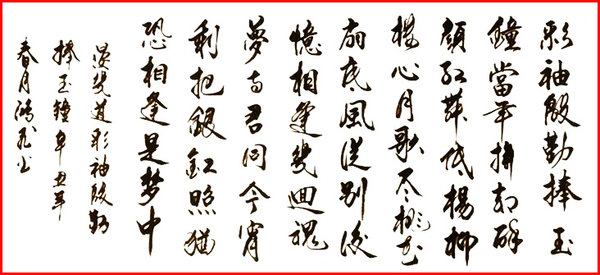 彩袖殷勤捧玉
鐘當年拚却醉
顏紅舞低楊柳
楼心月歌尽桃花
扇底風從别後
憶相逢幾迴魂
夢与君同今宵
剩把銀釭照猶
恐相逢是梦中
晏幾道彩袖殷勤
捧玉鐘辛丑年
春月鴻飛书